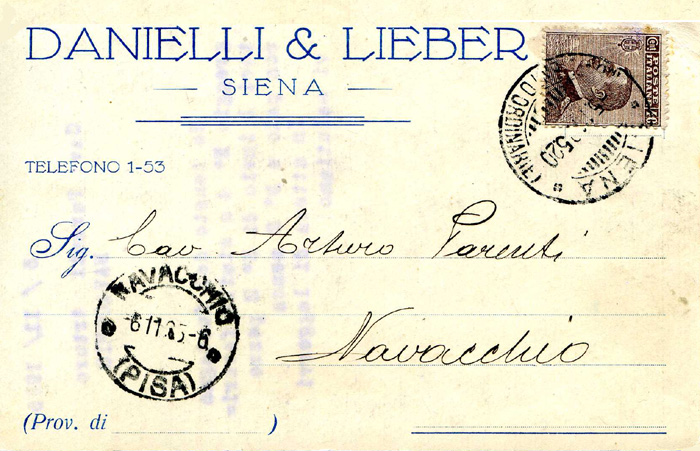 DANIELLI & LIEBER
SIENA
TELEFONO 1-53
POSTE ITALIANE
SIENA
(ORDINARIE)
Sig. Cav Arturo Parenti
Navacchio
NAVACCHIO
6 11 25-6
(PISA)
(Prov. di )